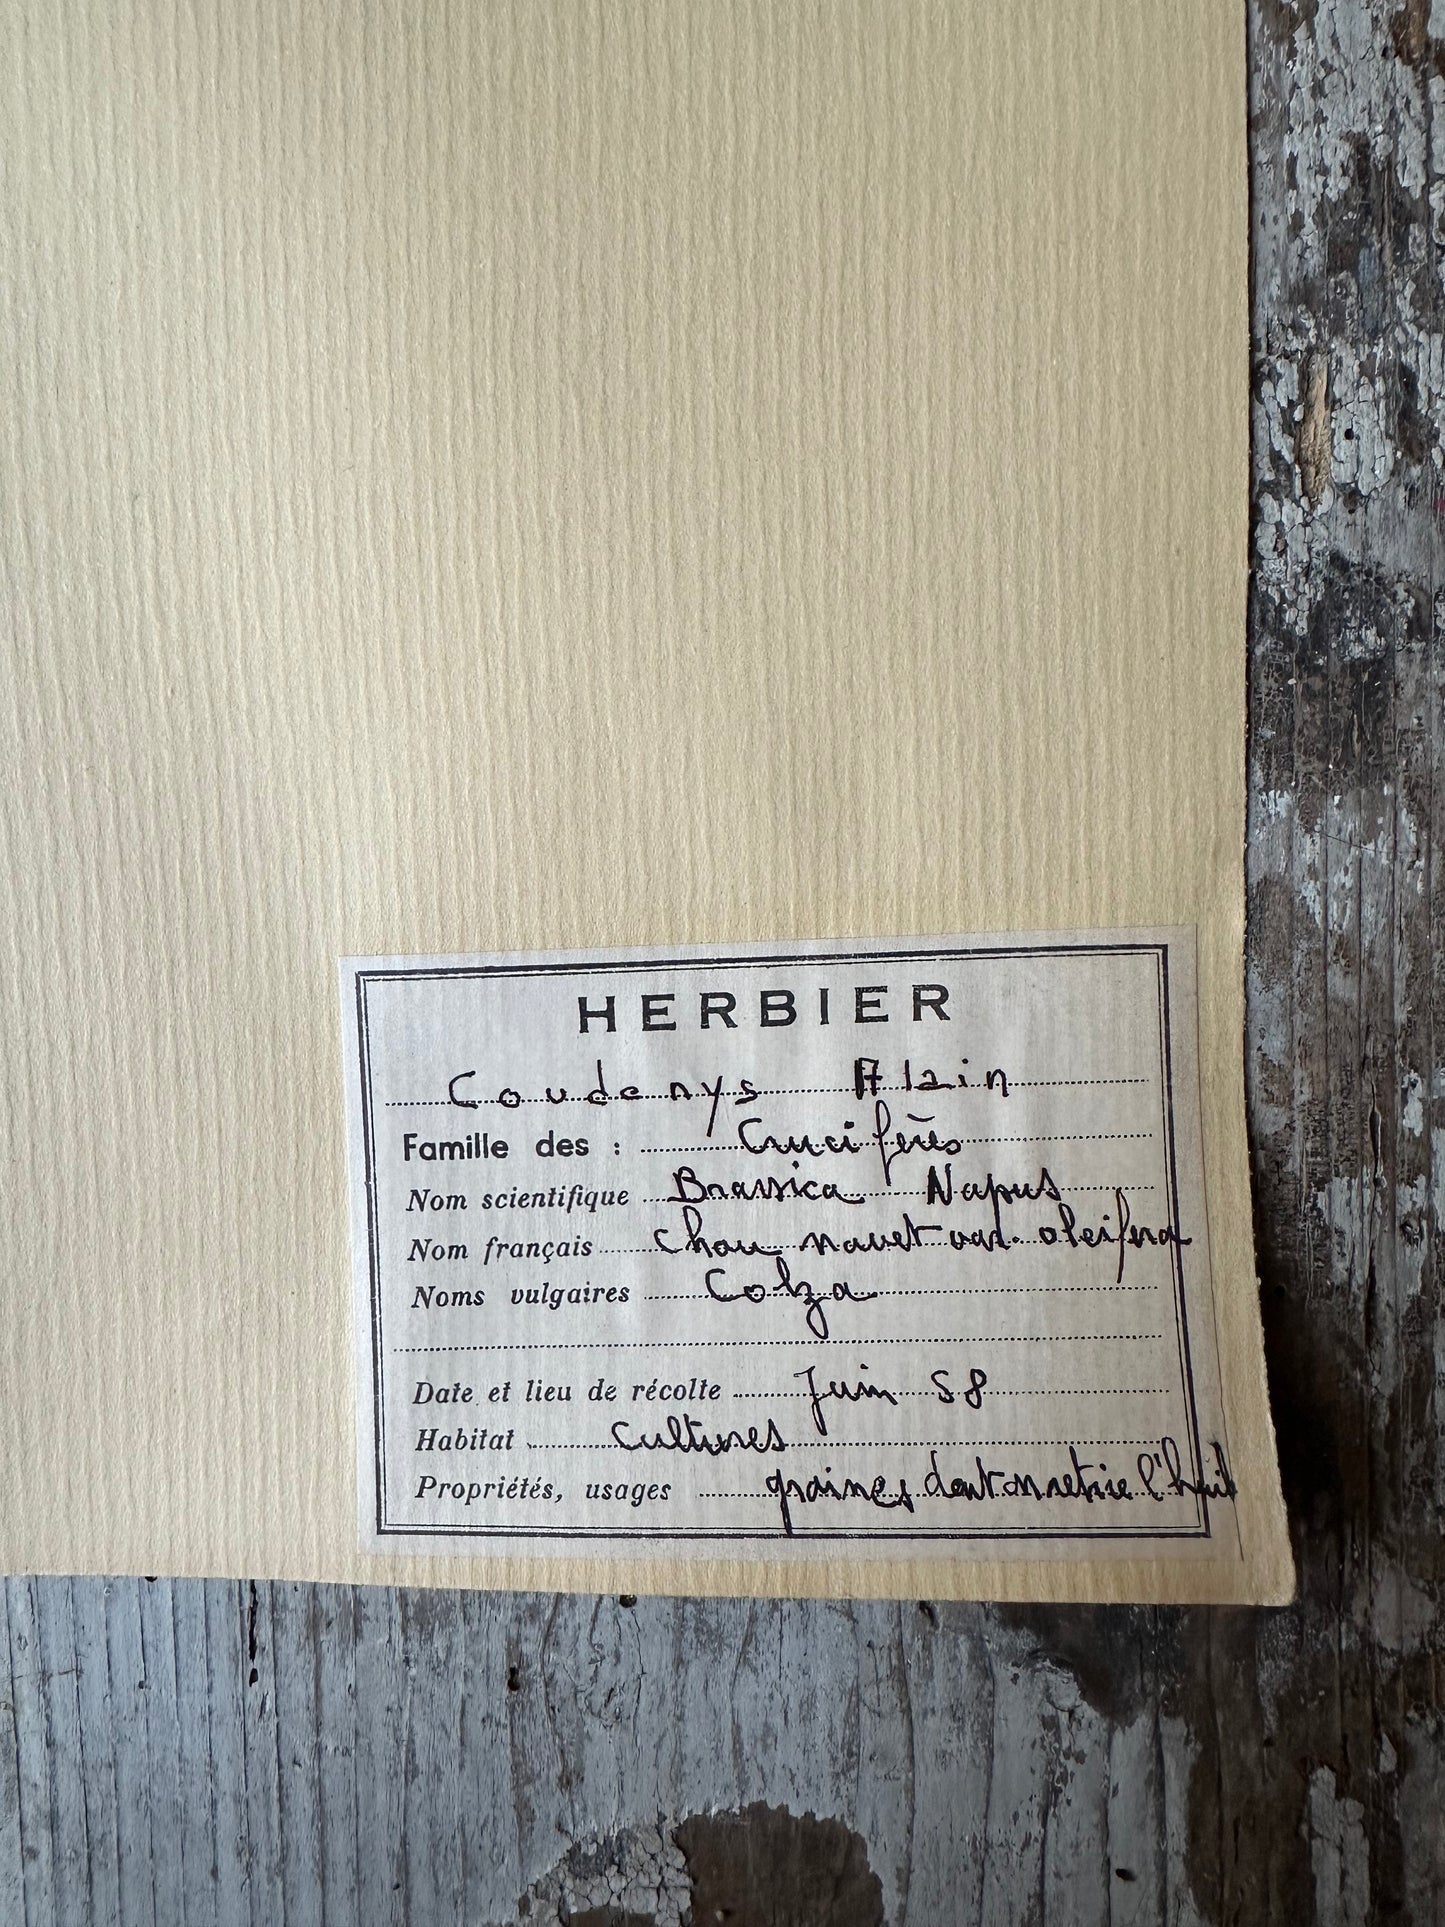 HERBIER
Coudenys Alain
Famille des : Crucifères
Nom scientifique Brassica Napus
Nom français chou navet var. oleifera
Noms vulgaires Colza
Date et lieu de récolte Juin 58
Habitat Cultures
Propriétés, usages graines dont on retire l'huil